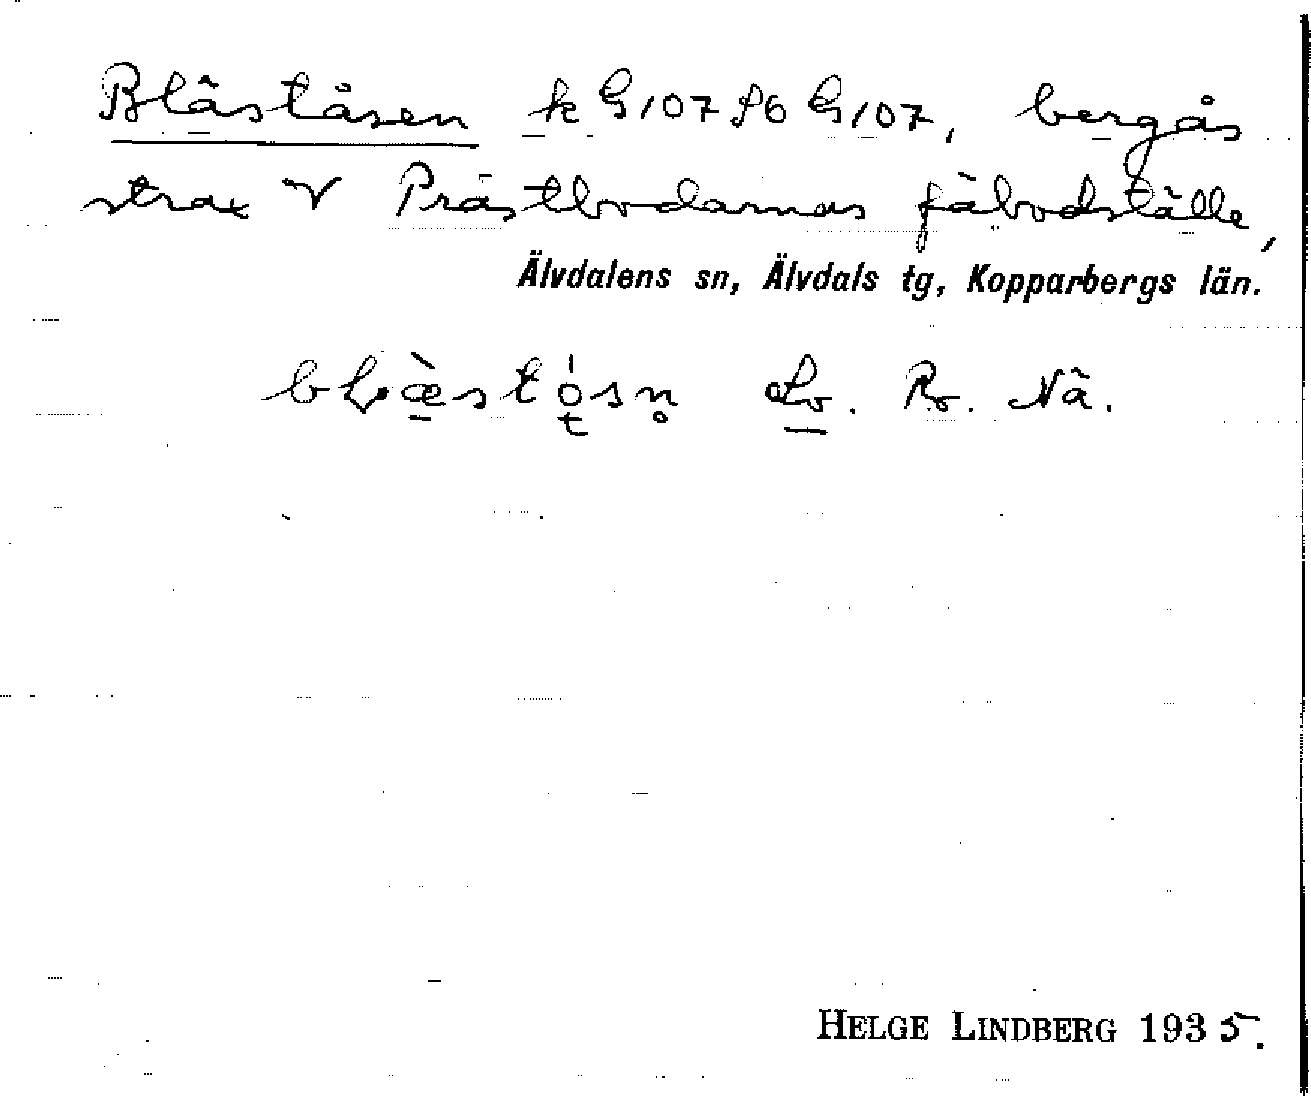 Blåståsen k G107 f6 G107, bergås
strax V Prästbodarnas fäbodställe,
Älvdalens sn, Älvdals tg, Kopparbergs län.
Lo. Ro. Nä.
HELGE LINDBERG 1935.